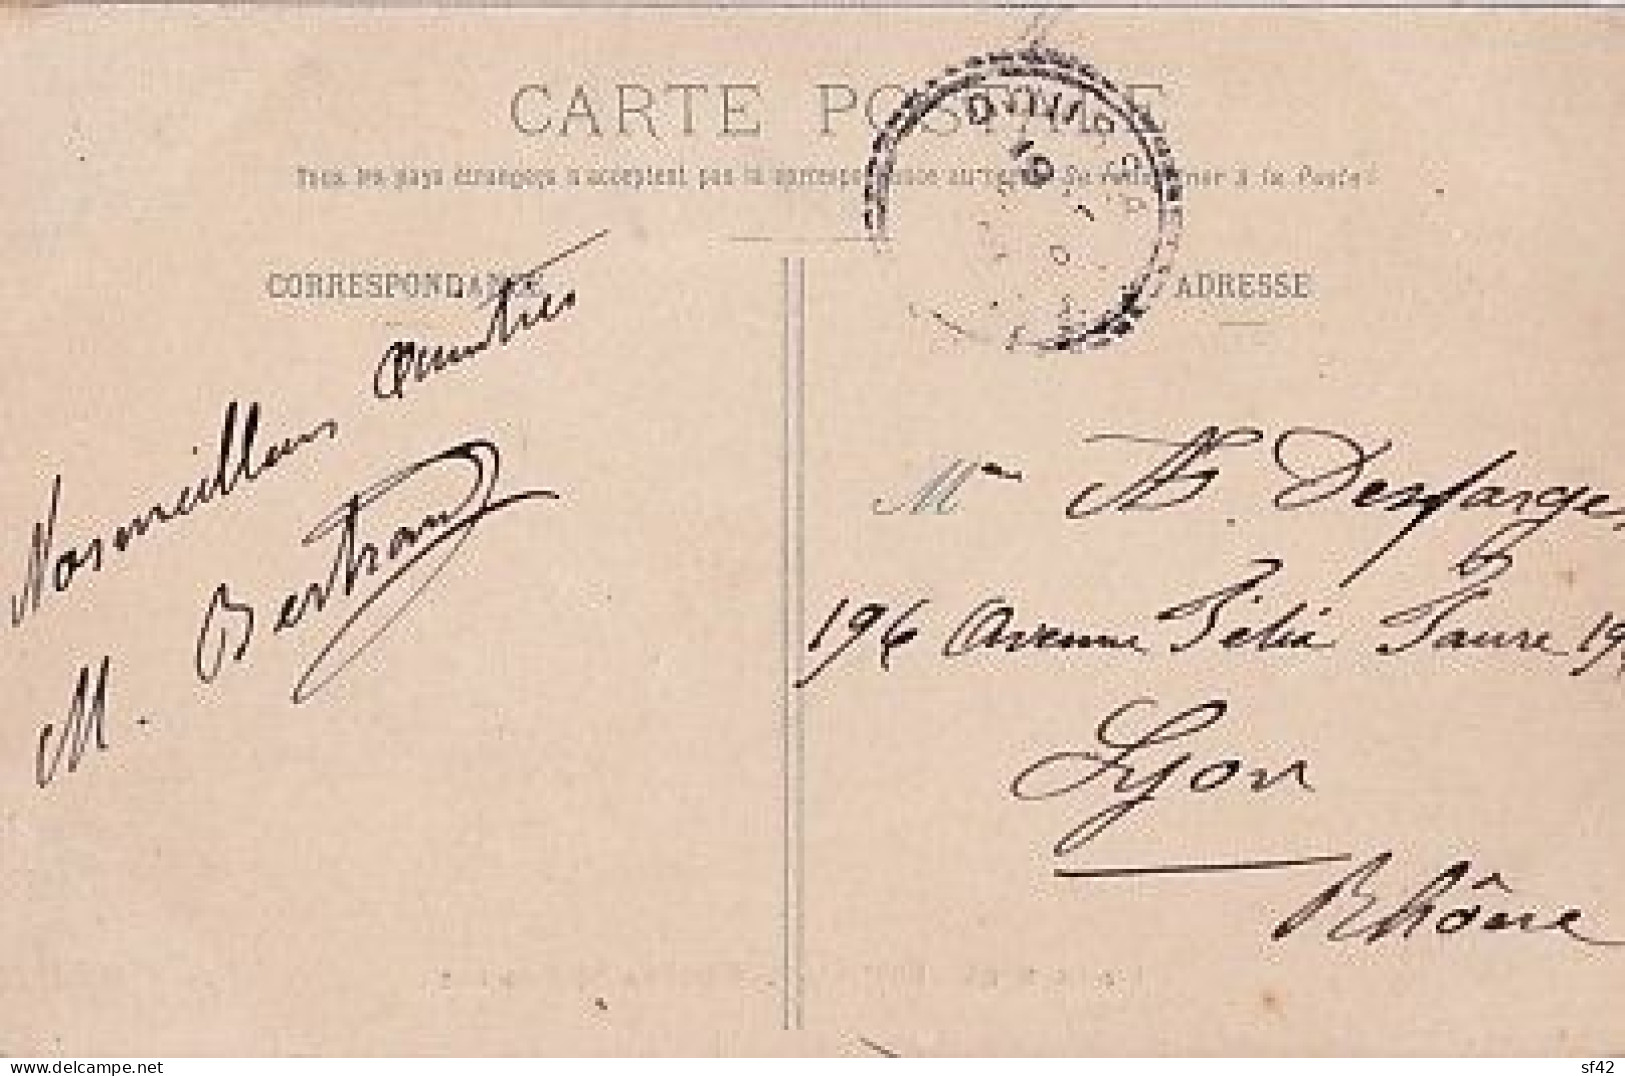 CARTE POSTALE
Tous les pays étrangers n'acceptent pas la correspondance au recto. Se renseigner à la Poste
CORRESPONDANCE
ADRESSE
Nos meilleurs
M. Bertrand
Mme Desfarges
196 Avenue Félix Faure 19
Lyon
Rhône
delcampe.net
sf42